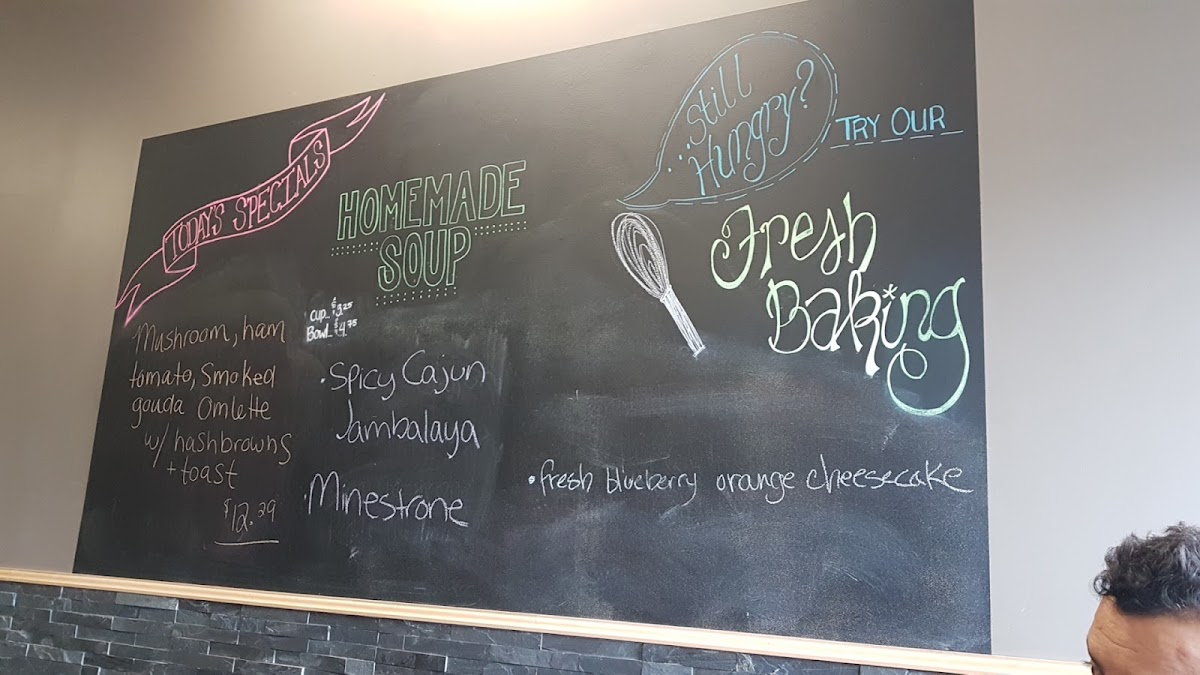 TODAY'S SPECIALS
Mushroom, ham
tomato, Smoked
gouda Omlette
w/ hashbrowns
+ toast
$12.29
HOMEMADE
SOUP
Cup_ $3.25
Bowl_ $4.75
• Spicy Cajun
Jambalaya
• Minestrone
Still
Hungry?
TRY OUR
Fresh
Baking
• fresh blueberry orange cheesecake